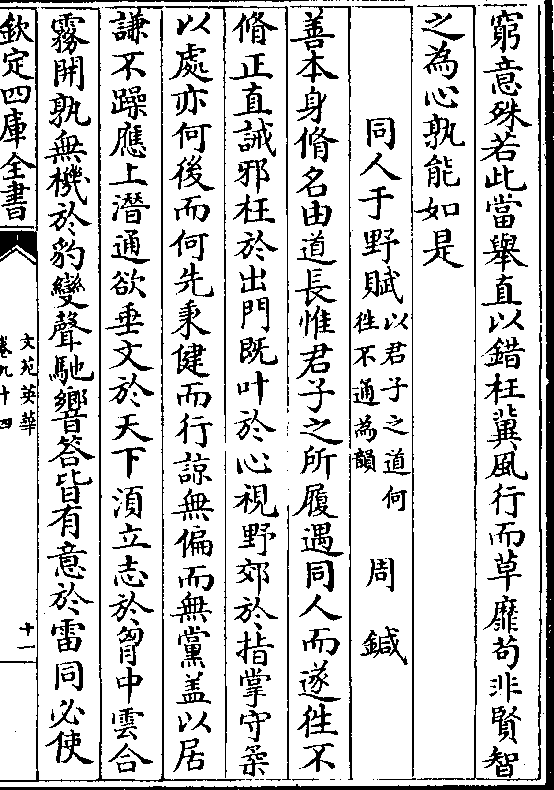 窮意殊若此當舉直以錯枉冀風行而草靡茍非賢智
之為心孰能如是
同人于野賦
以君子之道何
徃不通為韻
周鍼
善本身脩名由道長惟君子之所履遇同人而遂徃不
脩正直誡邪枉於出門既叶於心視野郊於指掌守柔
以處亦何後而何先秉健而行諒無偏而無黨盖以居
謙不躁應上潛通欲垂文於天下湏立志於胷中雲合
霧開孰無機於豹變聲馳響答皆有意於雷同必使
欽定四庫全書
文苑英華
卷九十四
十一